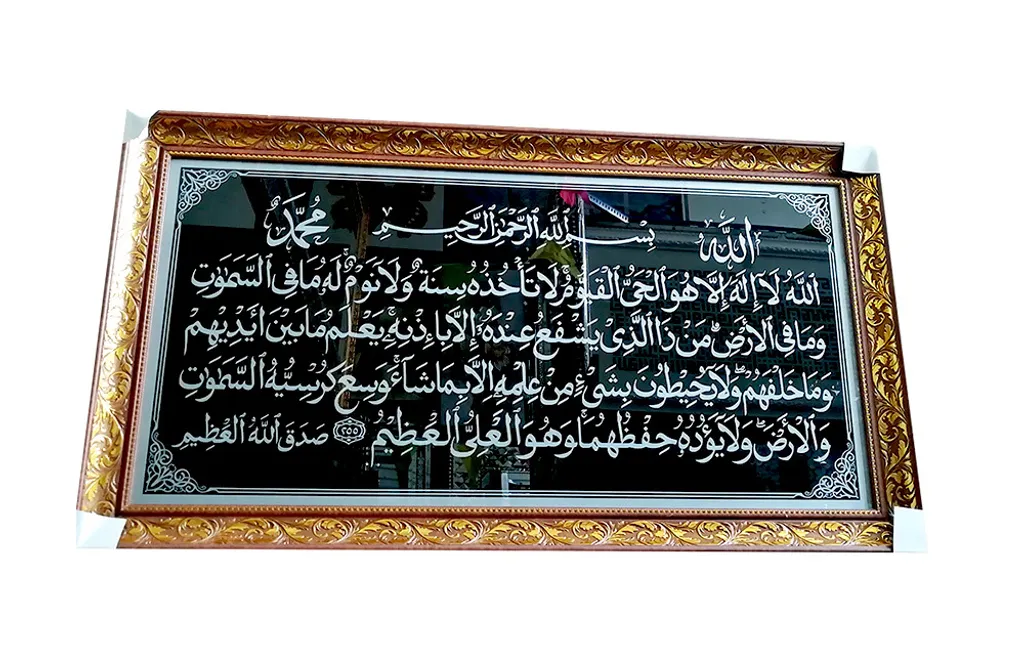 الله
بِسْمِ ٱللَّهِ ٱلرَّحْمَٰنِ ٱلرَّحِيمِ
مُحَمَّدٌ
اَللّٰهُ لَآ اِلٰهَ اِلَّا هُوَ اَلْحَيُّ الْقَيُّوْمُ ۚ لَا تَأْخُذُهٗ سِنَةٌ وَّلَا نَوْمٌ ۗ لَهٗ مَا فِى السَّمٰوٰتِ
وَمَا فِى الْاَرْضِ ۗ مَنْ ذَا الَّذِيْ يَشْفَعُ عِنْدَهٗٓ اِلَّا بِاِذْنِهٖ ۗ يَعْلَمُ مَا بَيْنَ اَيْدِيْهِمْ
وَمَا خَلْفَهُمْ ۚ وَلَا يُحِيْطُوْنَ بِشَيْءٍ مِّنْ عِلْمِهٖٓ اِلَّا بِمَا شَآءَ ۚ وَسِعَ كُرْسِيُّهُ السَّمٰوٰتِ
وَالْاَرْضَ ۚ وَلَا يَـُٔوْدُهٗ حِفْظُهُمَا ۚ وَهُوَ الْعَلِيُّ الْعَظِيْمُ ٢٥٥ صَدَقَ اللّٰهُ الْعَظِيْمُ